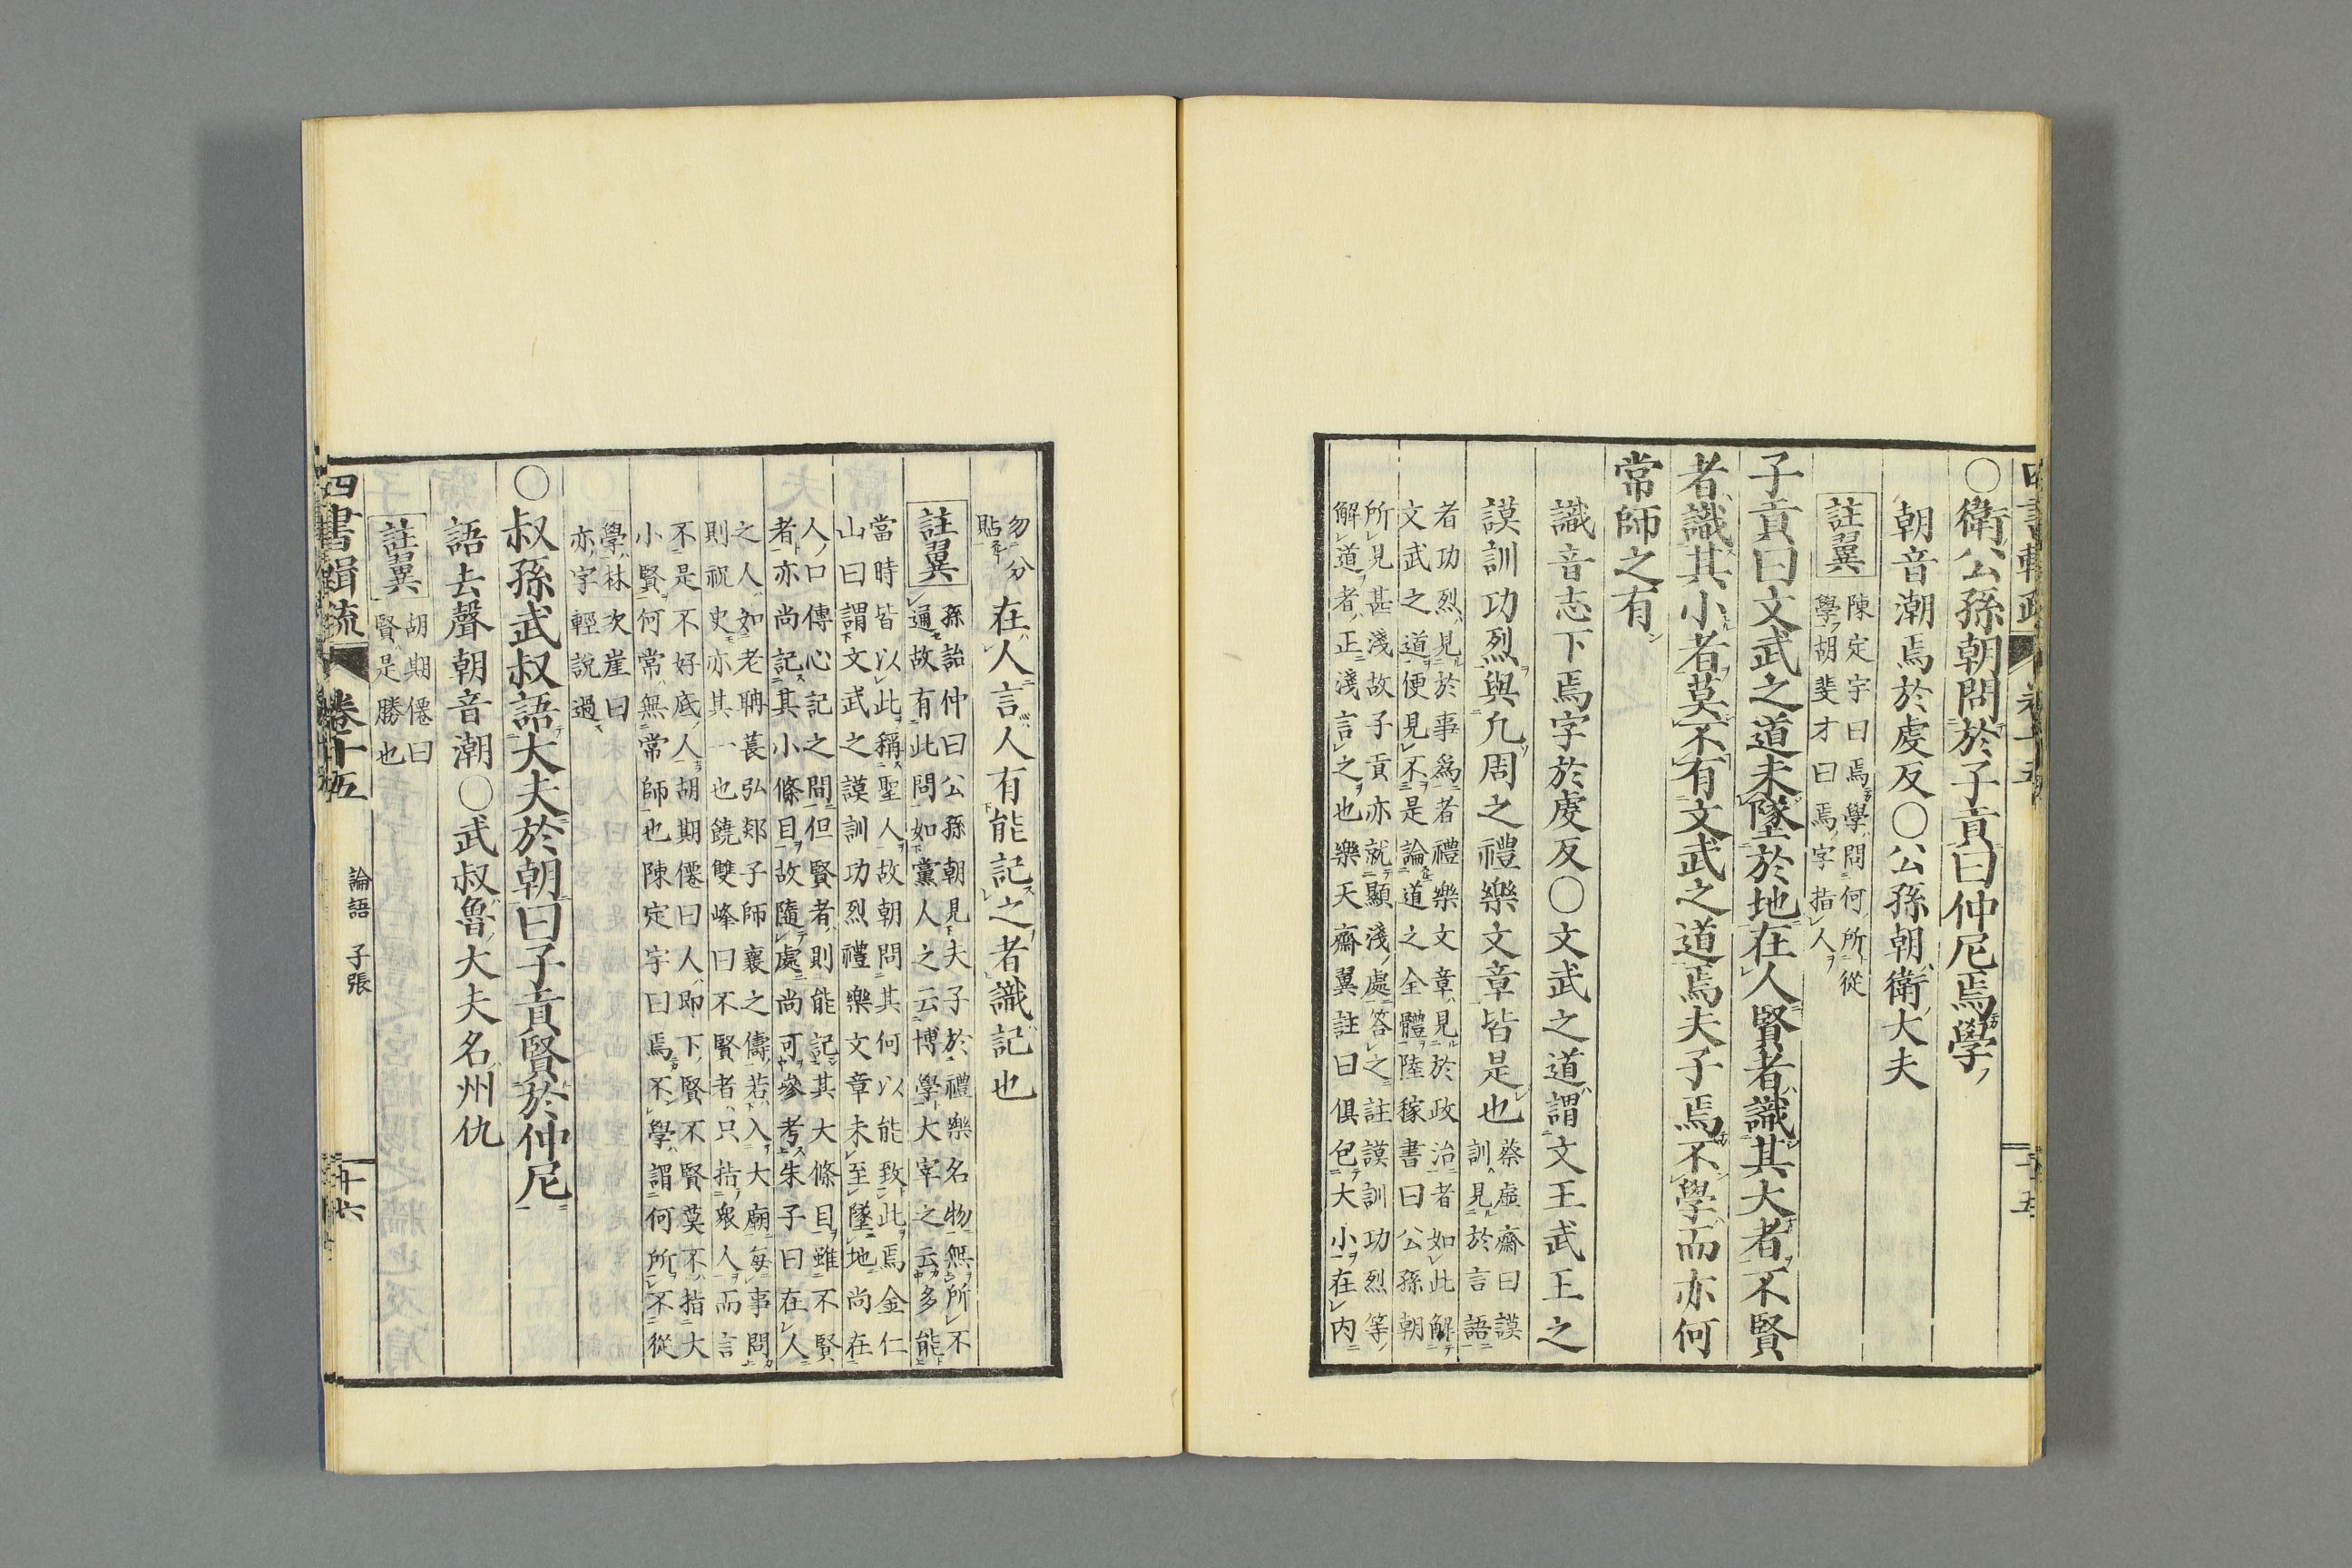 〇衛公孫朝問於子貢曰仲尼焉學
朝音潮焉於虔反〇公孫朝衛大夫
註翼
陳定宇曰焉學問何所從
學胡斐才曰焉字指人
子貢曰文武之道未墜於地在人賢者識其大者不賢
者識其小者莫不有文武之道焉夫子焉不學而亦何
常師之有
識音志下焉字於虔反〇文武之道謂文王武王之
謨訓功烈與凡周之禮樂文章皆是也
蔡虛齋曰謨
訓見於言語
者功烈見於事為者禮樂文章見於政治者如此解
文武之道便見不是論道之全體陸稼書曰公孫朝
所見甚淺故子貢亦就顯淺處答之註謨訓功烈等
解道者正淺言之也樂天齋翼註曰俱包大小在內
勿分
貼
在人言人有能記之者識記也
註翼
孫詒仲曰公孫朝見夫子於禮樂名物無所不
通故有此問如黨人之云博學大宰之云多能
當時皆以此稱聖人故朝問其何以能致此焉金仁
山曰謂文武之謨訓功烈禮樂文章未至墜地尚在
人口傳心記之間但賢者則能記其大條目雖不賢
者亦尚記其小條目故隨處尚可參考朱子曰在人
之人如老聃萇弘郯子師襄之儔若入大廟每事問
則祝史亦其一也饒雙峰曰不賢者只指衆人而言
不是不好底人胡期僊曰人即下賢不賢莫不指大
小賢何常無常師也陳定宇曰焉不學謂何所不從
學林次崖曰
亦字輕說過
〇叔孫武叔語大夫於朝曰子貢賢於仲尼
語去聲朝音潮〇武叔魯大夫名州仇
註翼
胡期僊曰
賢是勝也
四書輯疏
卷十五
論語 子張
廿六